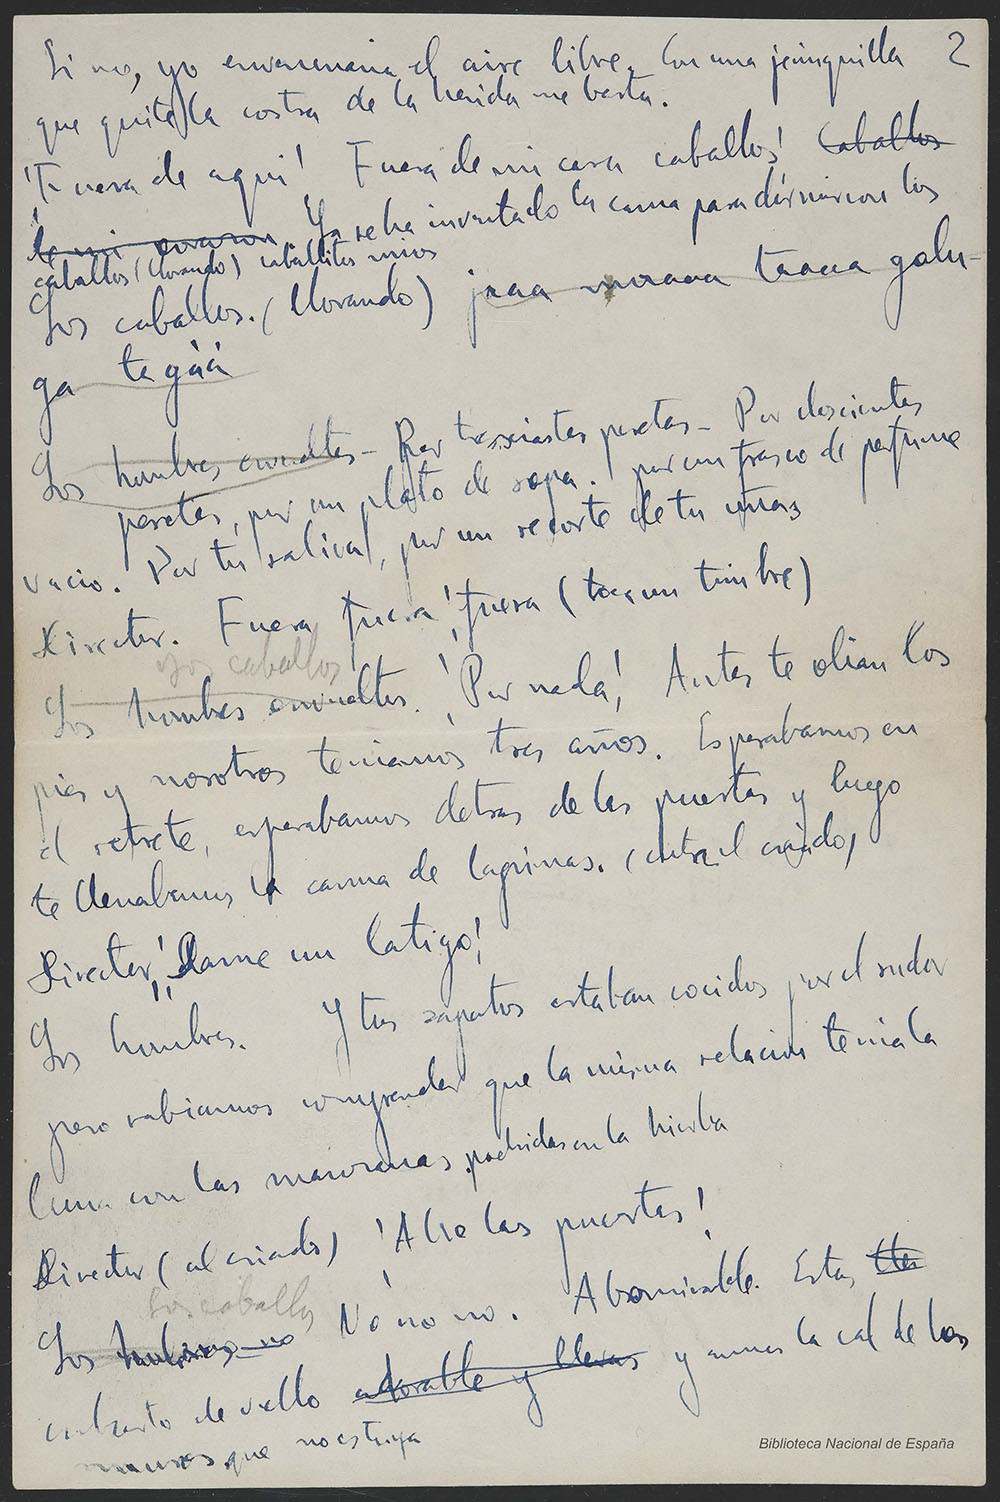 2
Si no, yo envenenaria el aire libre. Con una jeringuilla
que quite la costra de la herida me basta.
¡Fuera de aqui! Fuera de mi casa caballos! Caballos
de mi Ya se ha inventado la cama para dormir con los
caballos (llorando) caballitos mios
Los caballos. (llorando)
ga
Los hombres envueltos – Por trescientas pesetas – Por doscientas
pesetas, por un plato de sopa. por un frasco de perfume
vacio. Por tu saliva, por un recorte de tu uñas
Director. Fuera fuera! fuera (toca un timbre)
Los caballos
Los hombres envueltos. ¡Por nada! Antes te olian los
pies y nosotros teniamos tres años. Esperabamos en
el retrete, esperabamos detras de las puertas y luego
te llenabamos la cama de lagrimas. (entra el criado)
Director ¡Dame un latigo!
Los hombres. Y tus zapatos estaban cocidos por el sudor
pero sabiamos comprender que la misma relacion tenia la
luna con las manzanas podridas en la hierba
Director (al criado) ¡Abre las puertas!
Los caballos
Los hombres no No no no. Abominable. Estas
cubierto de vello adorable y lleras y comes la cal de los
muros que no es tuya
Biblioteca Nacional de España